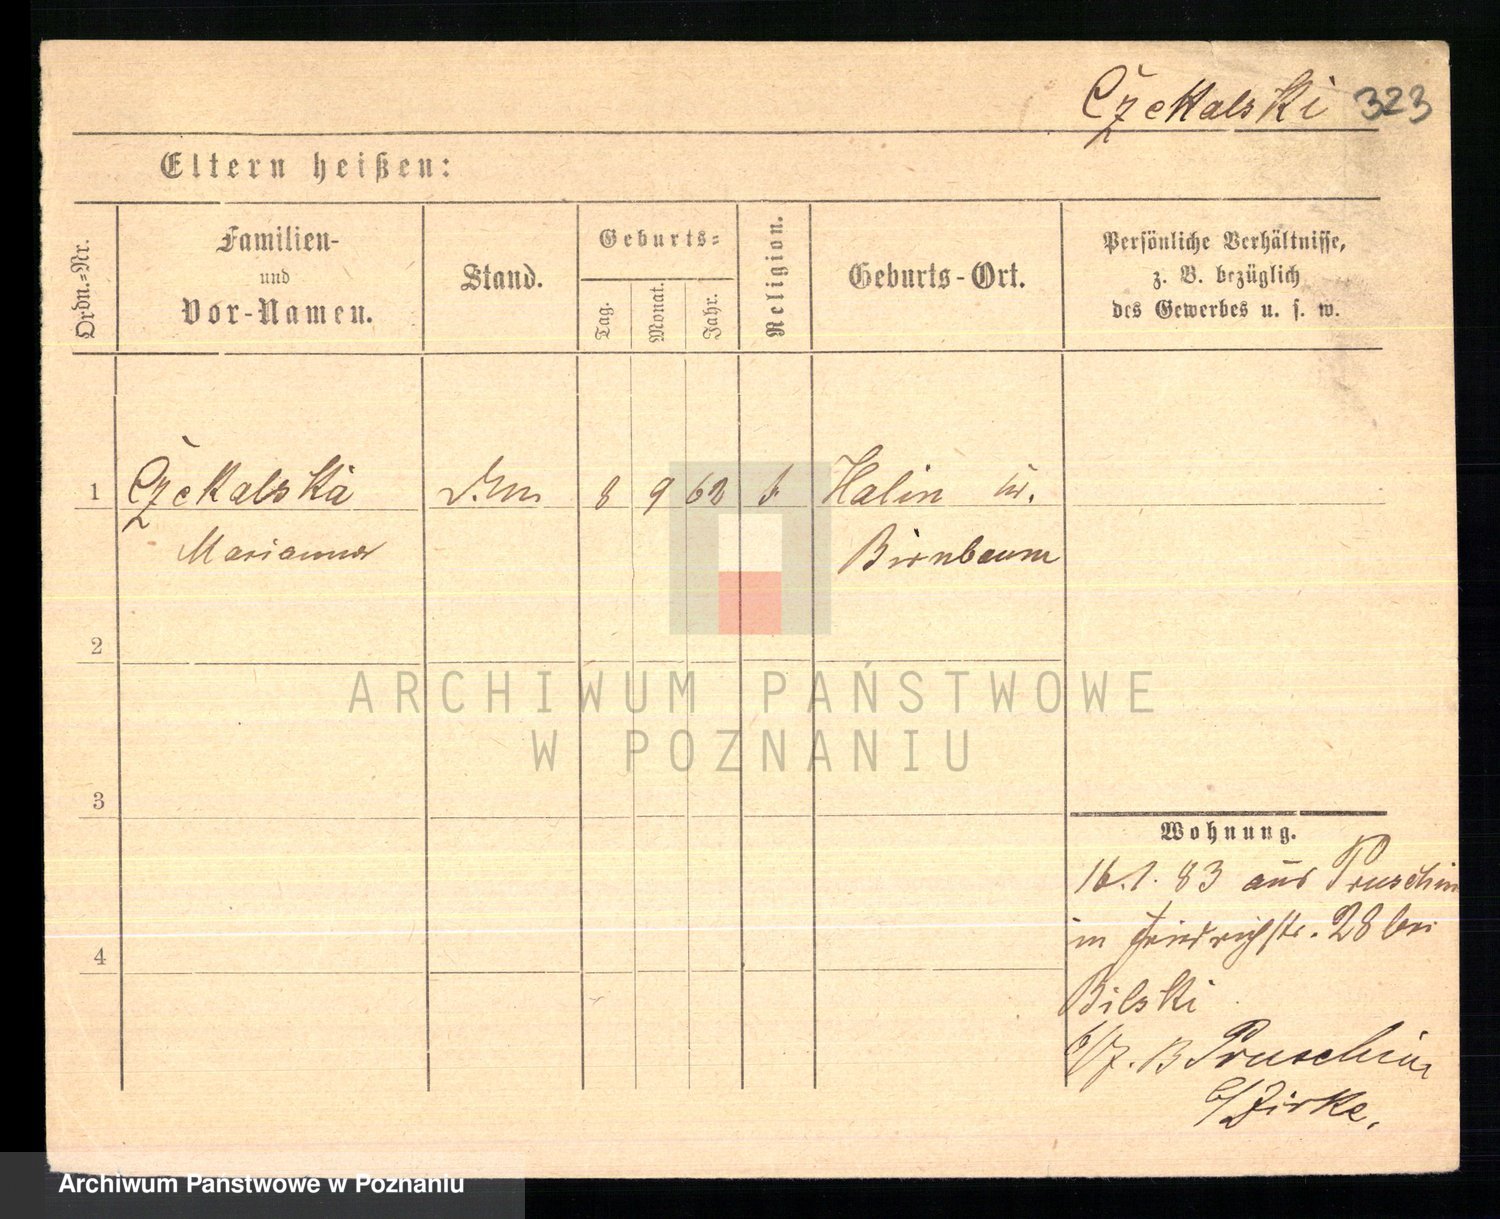 Czekalski 323
Eltern heißen:
Ordn.-Nr.
Familien-
und
Vor-Namen.
Stand.
Geburts-
Tag.
Monat.
Jahr.
Religion.
Geburts-Ort.
Persönliche Verhältnisse,
z. B. bezüglich
des Gewerbes u. s. w.
1 Czekalska 8 9 62 Halin
Marianna Birnbaum
2
ARCHIWUM PAŃSTWOWE
W POZNANIU
3
4
Wohnung.
16.1.83 aus Pruschim
in Friedrichstr. 28 bei
Bilski
Pruschim
b/Zirke.
Archiwum Państwowe w Poznaniu